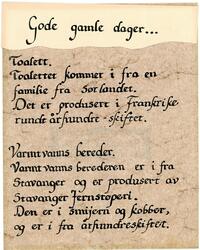 Gode gamle dager...
Toalett.
Toalettet kommer i fra en
familie fra Sørlandet.
Det er produsert i Frankrike
rundt århundre-skiftet.
Varmtvanns bereder.
Varmt vanns berederen er i fra
Stavanger og er produsert av
Stavanger Jernstøperi.
Den er i smijern og kobber,
og er i fra århundreskiftet.